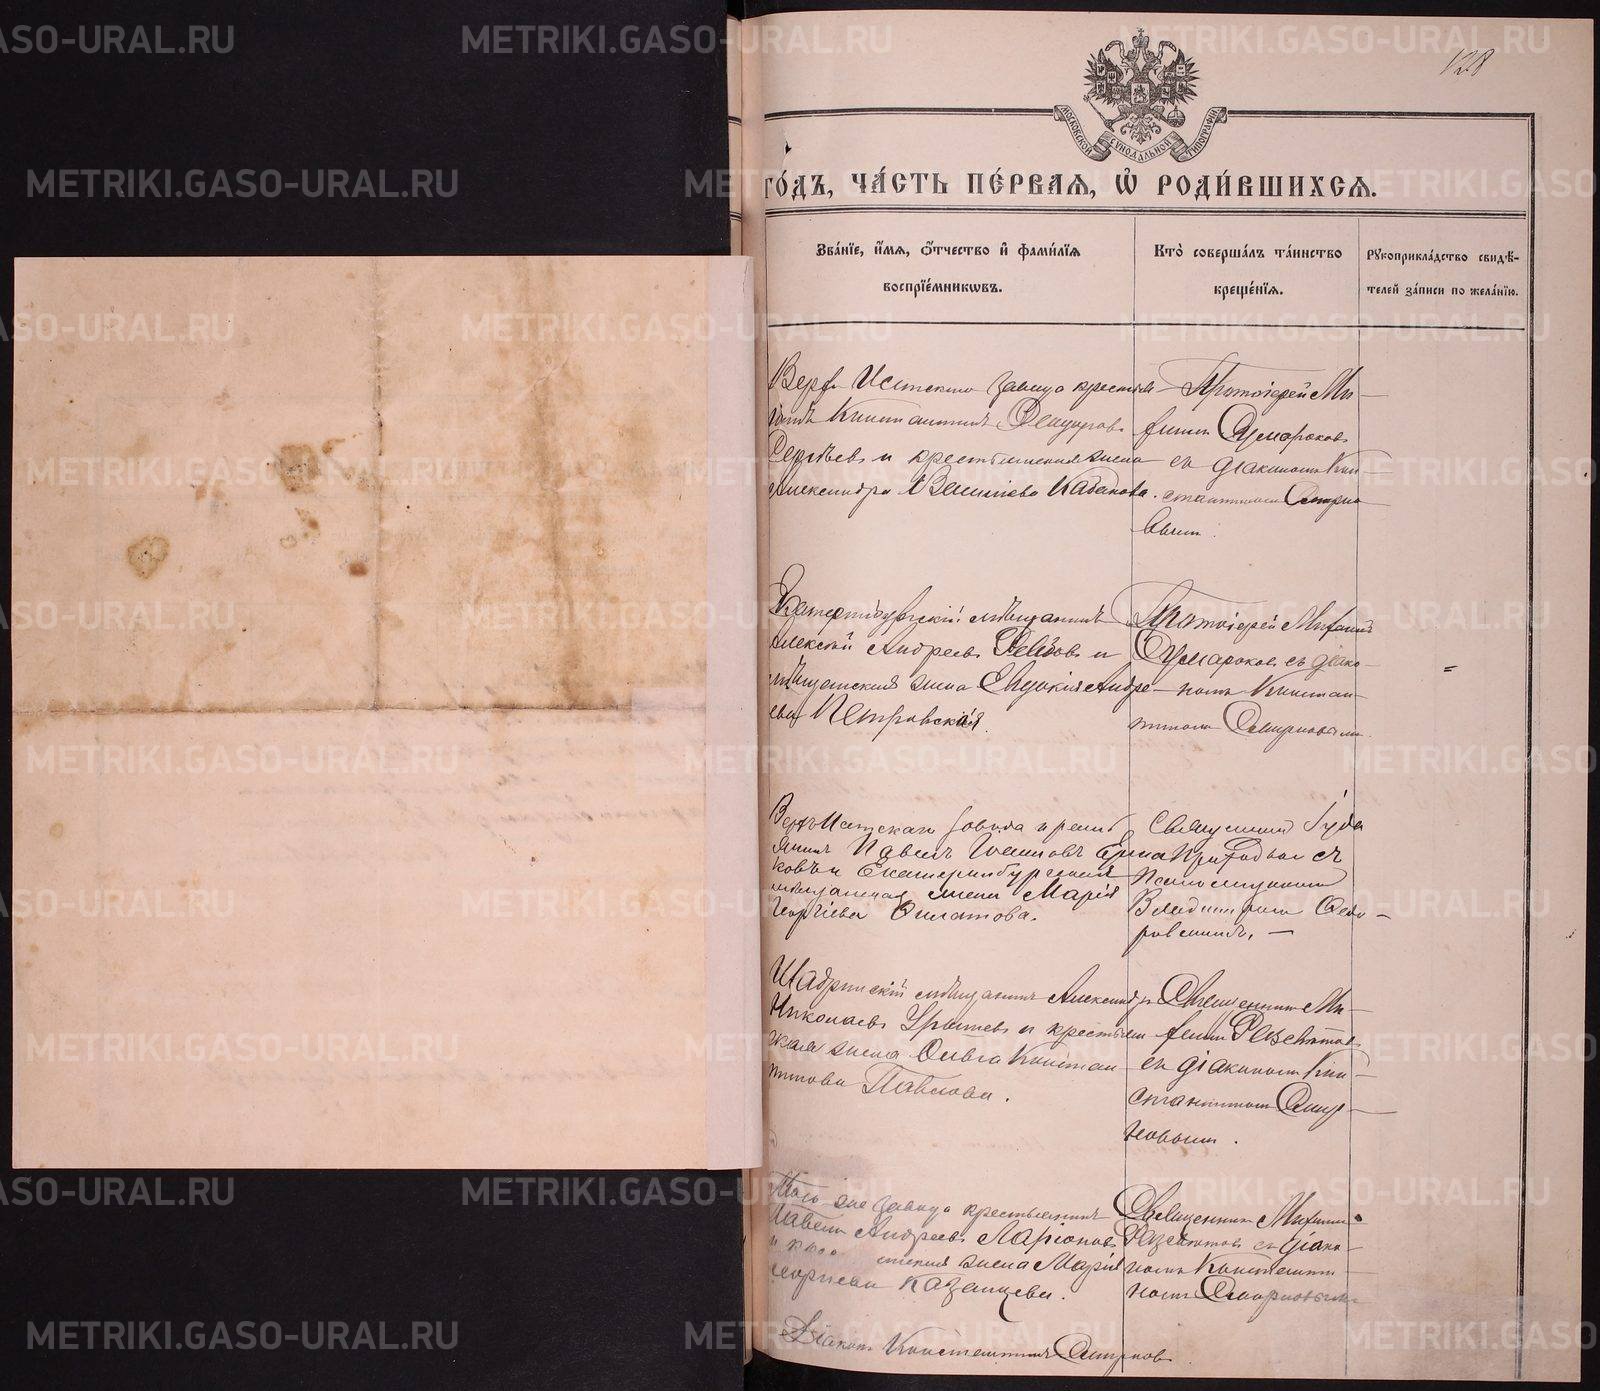 128
МОСКОВСКОЙ СѴНОДАЛЬНОЙ ТИПОГРАФІИ
го́дъ, ча́сть пе́рваѧ, ѡ҆ роди́вшихсѧ.
Зва́нїе, и҆́мѧ, ѻ҆́тчество и҆ фамі́лїѧ
воспрїе́мникѡвъ.
Кто̀ соверша́лъ та́инство
креще́нїѧ.
Рꙋкоприкла́дство свидѣ́-
телей за́писи по жела́нїю.
Верхъ Исетскаго завода крестья-
нинъ Константинъ
Сергѣевъ и крестьянская жена
Александра Васильева Кабакова.
Протоіерей Ми-
хаилъ Сумароковъ
съ діакономъ Кон-
стантиномъ Смирно-
вымъ.
Екатеринбургскій мѣщанинъ
Алексѣй Андреевъ и
мѣщанская жена Евдокія Андре-
ева Петровская.
Протоіерей Михаилъ
Сумароковъ съ діако-
номъ Констан-
тиномъ Смирновымъ.
=
Верхъ Исетскаго завода крестьь
янинъ Павелъ Ивановъ Ерма
ковъ и Екатеринбургская
мѣщанская жена Марія
Георгіева Филатова.
Священникъ Іуда
Приходько съ
псаломщикомъ
Владиміромъ Федо-
ровскимъ.
Шадринскій мѣщанинъ Александръ
Николаевъ и крестьян
ская жена Ольга Констан
тинова Павлова.
Священникъ Ми-
хаилъ
съ діакономъ Кон-
стантиномъ Смир-
новымъ.
Того же завода крестьянинъ
Павелъ Андреевъ Ларіоновъ
и жена Марія
Георгіева Казанцева.
Священникъ Михаилъ
съ діако-
номъ Константи-
номъ Смирновымъ
Діаконъ Константинъ Смирновъ
METRIKI.GASO-URAL.RU